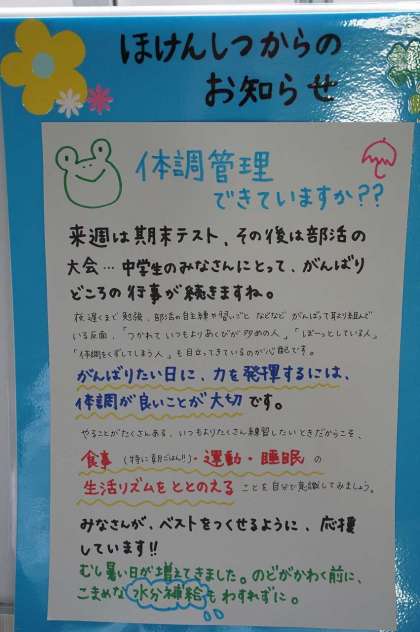 ほけんしつからの
お知らせ
体調管理
できていますか??
来週は期末テスト、その後は部活の
大会…中学生のみなさんにとって、がんばり
どころの行事が続きますね。
夜遅くまで勉強、部活の自主練や習いごと などなど がんばって取り組んで
いる反面、「つかれて いつもよりあくびが多めの人」「ぼーっとしている人」
「体調をくずしてしまう人」も目立ってきているのが心配です。
がんばりたい日に、力を発揮するには、
体調が良いことが大切です。
やることがたくさんある、いつもよりたくさん練習したいときだからこそ、
食事(特に朝ごはん!!)・運動・睡眠 の
生活リズムをととのえる ことを自分で意識してみましょう。
みなさんが、ベストをつくせるように、応援
しています!!
むし暑い日が増えてきました。のどがかわく前に、
こまめな 水分補給も わすれずに。